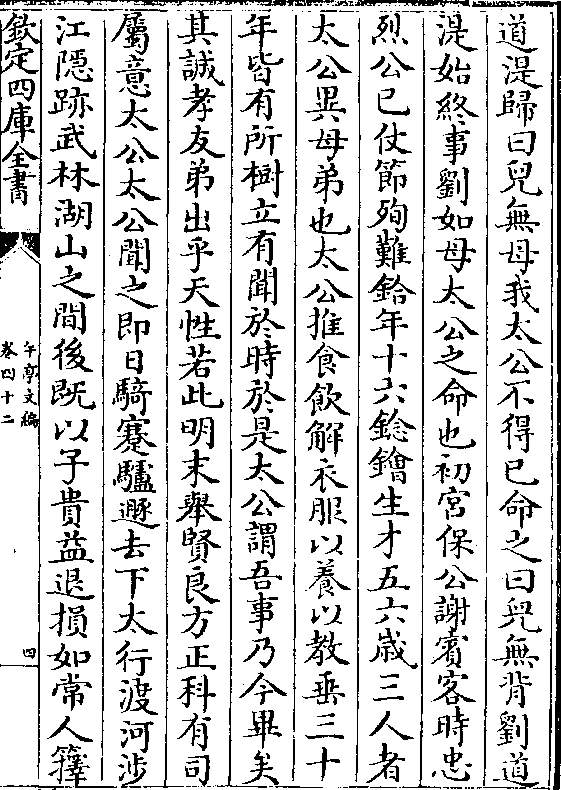 道湜歸曰兒無母我太公不得已命之曰兒無背劉道
湜始終事劉如母太公之命也初宫保公謝賓客時忠
烈公已仗節殉難鉿年十六鋑鐕生才五六歳三人者
太公異母弟也太公推食飲解衣服以養以教垂三十
年皆有所樹立有聞於時於是太公謂吾事乃今畢矣
其誠孝友弟出乎天性若此明末舉賢良方正科有司
屬意太公太公聞之即日騎蹇驢遯去下太行渡河涉
江隱跡武林湖山之間後既以子貴益退損如常人籜
欽定四庫全書
午亭文編
卷四十二
四